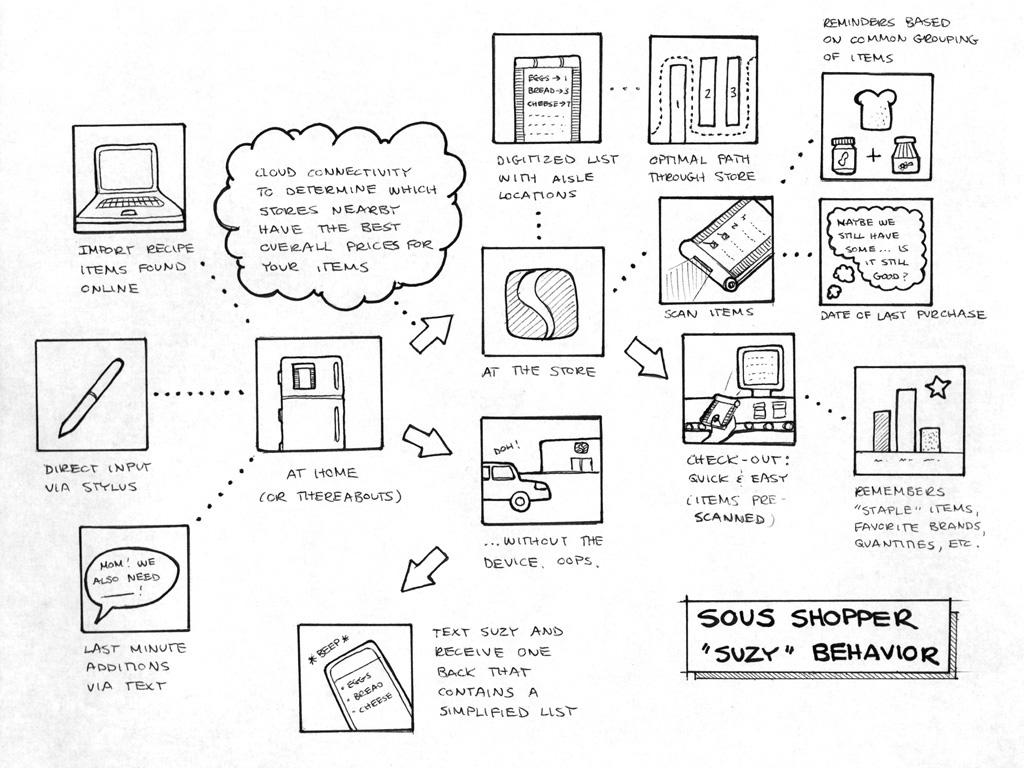 REMINDERS BASED
ON COMMON GROUPING
OF ITEMS
EGGS → 1
BREAD → 3
CHEESE → 7
1
2
3
DIGITIZED LIST
WITH AISLE
LOCATIONS
OPTIMAL PATH
THROUGH STORE
+
CLOUD CONNECTIVITY
TO DETERMINE WHICH
STORES NEARBY
HAVE THE BEST
OVERALL PRICES FOR
YOUR ITEMS
IMPORT RECIPE
ITEMS FOUND
ONLINE
MAYBE WE
STILL HAVE
SOME... IS
IT STILL
GOOD?
SCAN ITEMS
DATE OF LAST PURCHASE
AT THE STORE
DIRECT INPUT
VIA STYLUS
AT HOME
(OR THEREABOUTS)
DOH!
...WITHOUT THE
DEVICE. OOPS.
CHECK-OUT:
QUICK & EASY
(ITEMS PRE-
SCANNED)
REMEMBERS
"STAPLE" ITEMS,
FAVORITE BRANDS,
QUANTITIES, ETC.
MOM! WE
ALSO NEED
____!
LAST MINUTE
ADDITIONS
VIA TEXT
*BEEP*
• EGGS
• BREAD
• CHEESE
TEXT SUZY AND
RECEIVE ONE
BACK THAT
CONTAINS A
SIMPLIFIED LIST
SOUS SHOPPER
"SUZY" BEHAVIOR